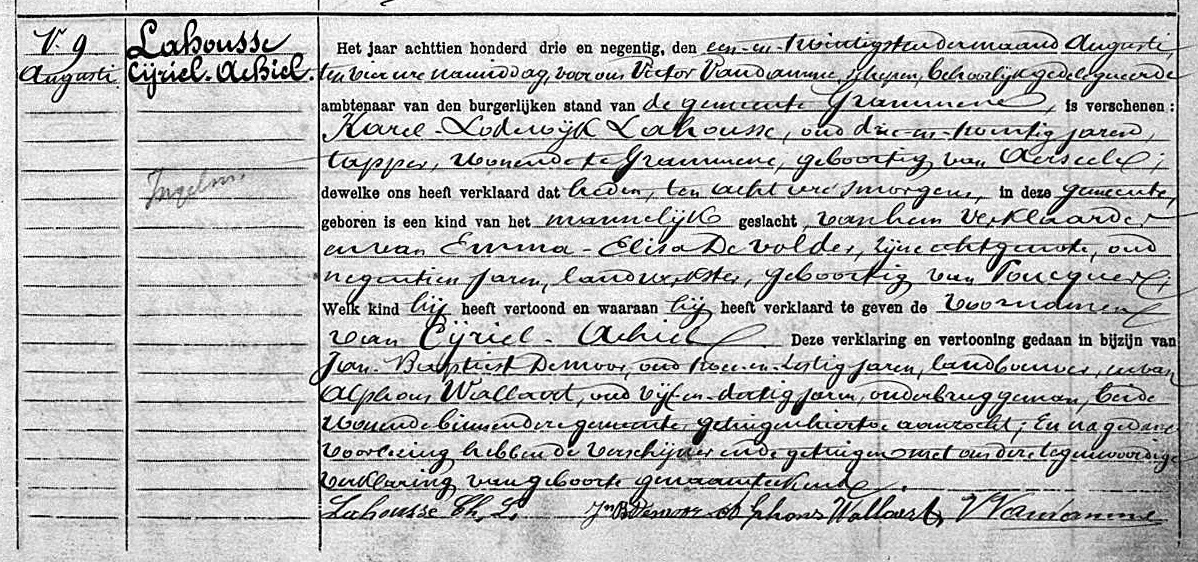 V. 9
Augusti
Lahousse
Cijriel-Achiel
Het jaar achttien honderd drie en negentig, den een-en-twintigsten der maand Augusti,
ten vier ure namiddag, voor ons Victor Vandamme, schepen, behoorlijk gedelegueerde
ambtenaar van den burgerlijken stand van de gemeente Grammene, is verschenen :
Karel-Lodewijk Lahousse, oud drie-en-twintig jaren,
tapper, wonende te Grammene, geboortig van Aerseele;
dewelke ons heeft verklaard dat heden, ten acht ure 's morgens, in deze gemeente,
geboren is een kind van het mannelijk geslacht, van hem verklaarder
en van Emma-Elisa De Volder, zijne echtgenote, oud
negentien jaren, landwerkster, geboortig van Poucques;
Welk kind hij heeft vertoond en waaraan hij heeft verklaard te geven de voornamen
van Cijriel-Achiel. Deze verklaring en vertooning gedaan in bijzijn van
Jan-Baptist Demoor, oud twee-en-zestig jaren, landbouwer, en van
Alphons Wallaert, oud vijf-en-dertig jaren, onderbruggeman, beide
wonende binnen deze gemeente, getuigen hiertoe aanzocht; En na gedane
voorlezing hebben de verschijner en de getuigen met ons deze tegenwoordige
verklaring van geboorte genaamteekend.
Lahousse Ch. L. Jn B Demoor Alphons Wallaert V Vandamme